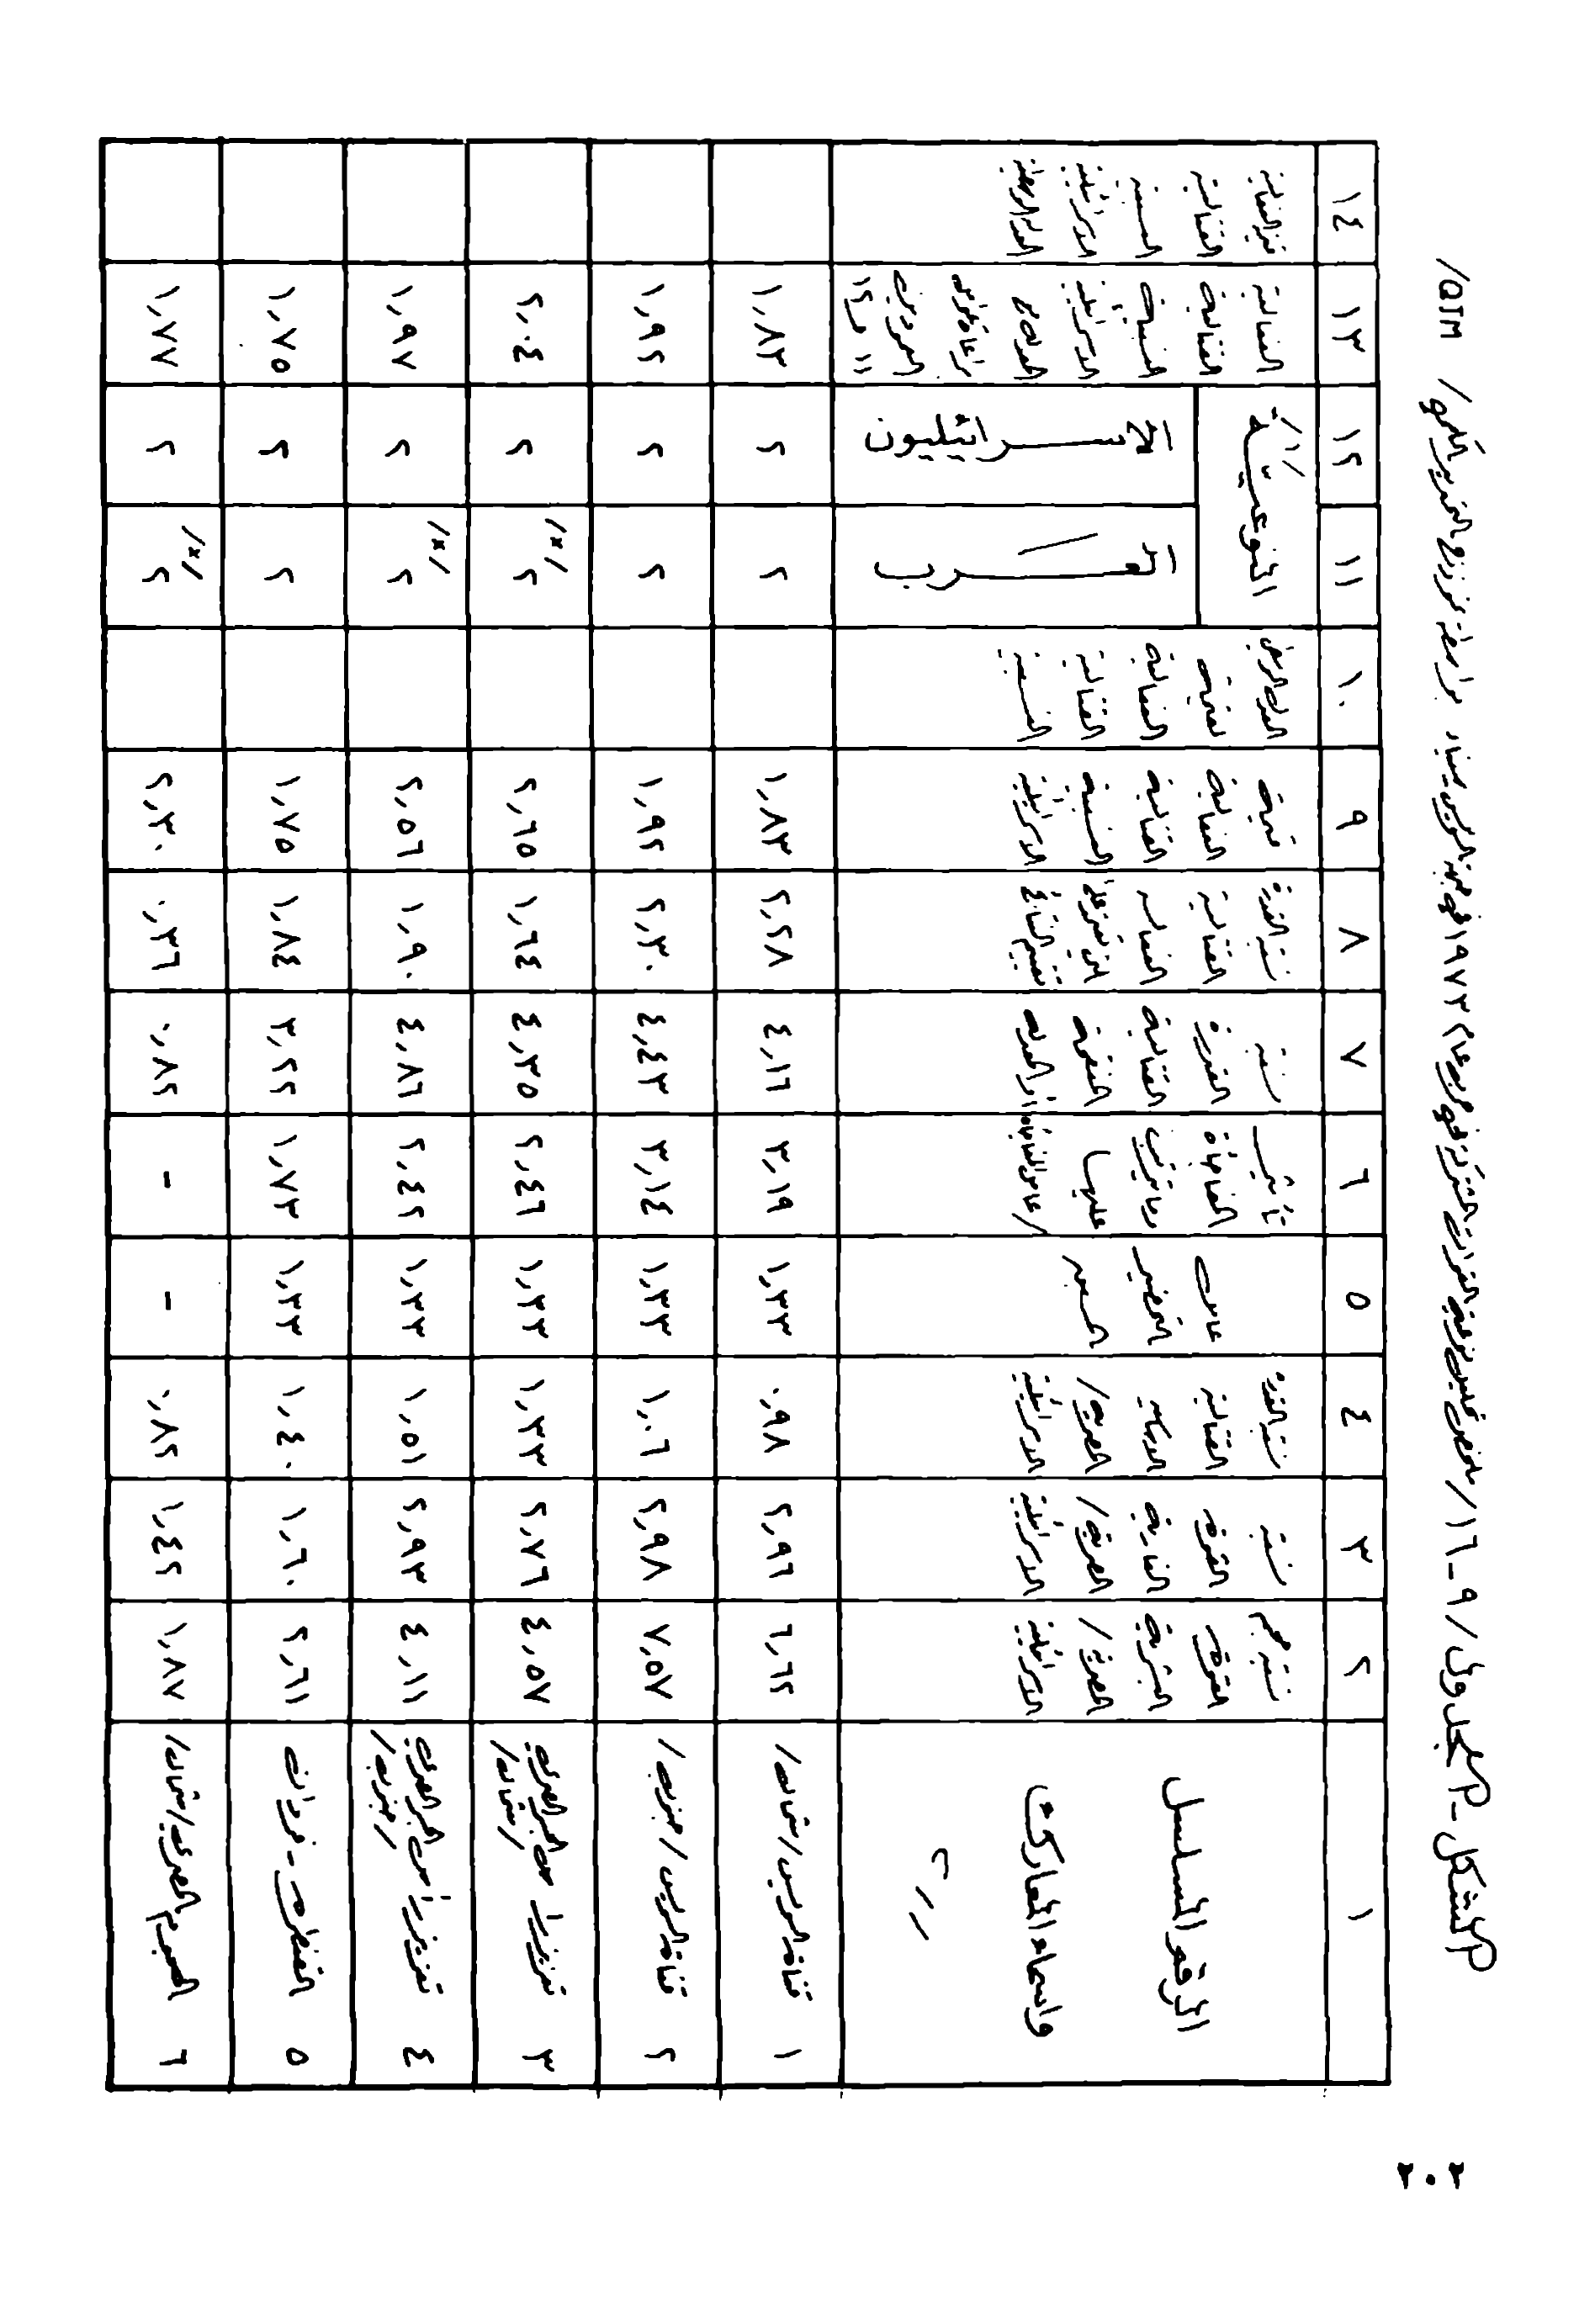 الشكل - الجدول / ٩ - ١٦ / ملخص تحليل نوعية القوات المشتركة في حرب عام ١٩٧٣ في جبهة السويس سيناء بواسطة نموذج التقدير الكمي / QJM /
١ ٢ ٣ ٤ ٥ ٦ ٧ ٨ ٩ ١٠ ١١ ١٢ ١٣ ١٤
الرقم المسلسل
واسماء المعارك
نسبة حجم
القوة
البشرية
المصرية /
الاسرائيلية
نسبة
القوة
النارية
المصرية /
الاسرائيلية
نسبة القدرة
القتالية
المصرية /
الاسرائيلية
عامل
التحضير
تأثير
المفاجأة
وما يترتب
عليها
/ عامل المفاجأة
نسبة
القدرة
القتالية
أو المعدلة
نسبة القدرة
القتالية
الفعالة
تقييم النتائج
قيمة
الفعالية
القتالية
النسبية
الاسرائيلية
لقيمة
الفعالية
القتالية
النسبية
النوعية
العرب
الاسرائيليون
الفعالية
القتالية
النسبية
الاسرائيلية
العمودين
١١ و ١٢
القتالية
النسبية
الاسرائيلية
١ قناة السويس / شمال / ٦,٦٢ ٢,٩٦ ٠,٩٨ ١,٣٣ ٣,١٩ ٤,١٦ ٢,٢٨ ١,٨٣ ٢ ٢ ١,٨٣
٢ قناة السويس / جنوب / ٧,٥٧ ٢,٩٨ ١,٠٦ ١,٣٣ ٣,١٤ ٤,٤٣ ٢,٣٠ ١,٩٢ ٢ ٢ ١,٩٢
٣ تعزيز رأس الجسر المصري / شمال / ٤,٥٧ ٢,٧٦ ١,٣٣ ١,٣٣ ٢,٤٦ ٤,٣٥ ١,٦٤ ٢,٦٥ ٢ /*/ ٢ ٢,٠٤
٤ تعزيز رأس الجسر المصري / جنوب / ٤,١١ ٢,٩٣ ١,٥١ ١,٣٣ ٢,٤٢ ٤,٨٦ ١,٩٠ ٢,٥٦ ٢ /*/ ٢ ١,٩٧
٥ القنطرة - فردان ٢,٦١ ١,٦٠ ١,٤٠ ١,٣٣ ١,٧٣ ٣,٢٢ ١,٨٤ ١,٧٥ ٢ ٢ ١,٧٥
٦ الهجوم المصري / شمال / ١,٨٧ ١,٤٢ ٠,٨٢ - - ٠,٨٢ ٠,٣٦ ٢,٣٠ ٢ /*/ ٢ ١,٧٧
٢٠٢